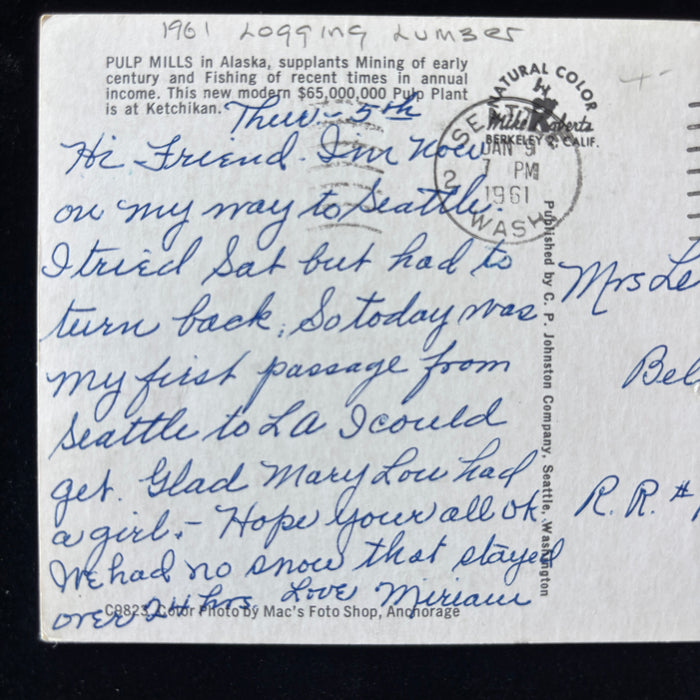 1961 Logging Lumber
PULP MILLS in Alaska, supplants Mining of early
century and Fishing of recent times in annual
income. This new modern $65,000,000 Pulp Plant
is at Ketchikan.
Thur - 5th
Hi Friend. I'm now
on my way to Seattle.
I tried Sat but had to
turn back. So today was
my first passage from
Seattle to LA I could
get. Glad Mary Lou had
a girl. - Hope your all ok
We had no snow that stayed
over 24 hrs Love Miriam
C9823, Color Photo by Mac's Foto Shop, Anchorage
NATURAL COLOR
Mike Roberts
BERKELEY 2, CALIF.
SEATTLE
JAN 9
7 PM
1961
2
WASH
Published by C. P. Johnston Company, Seattle, Washington
Mrs Le
Bel
R. R. #